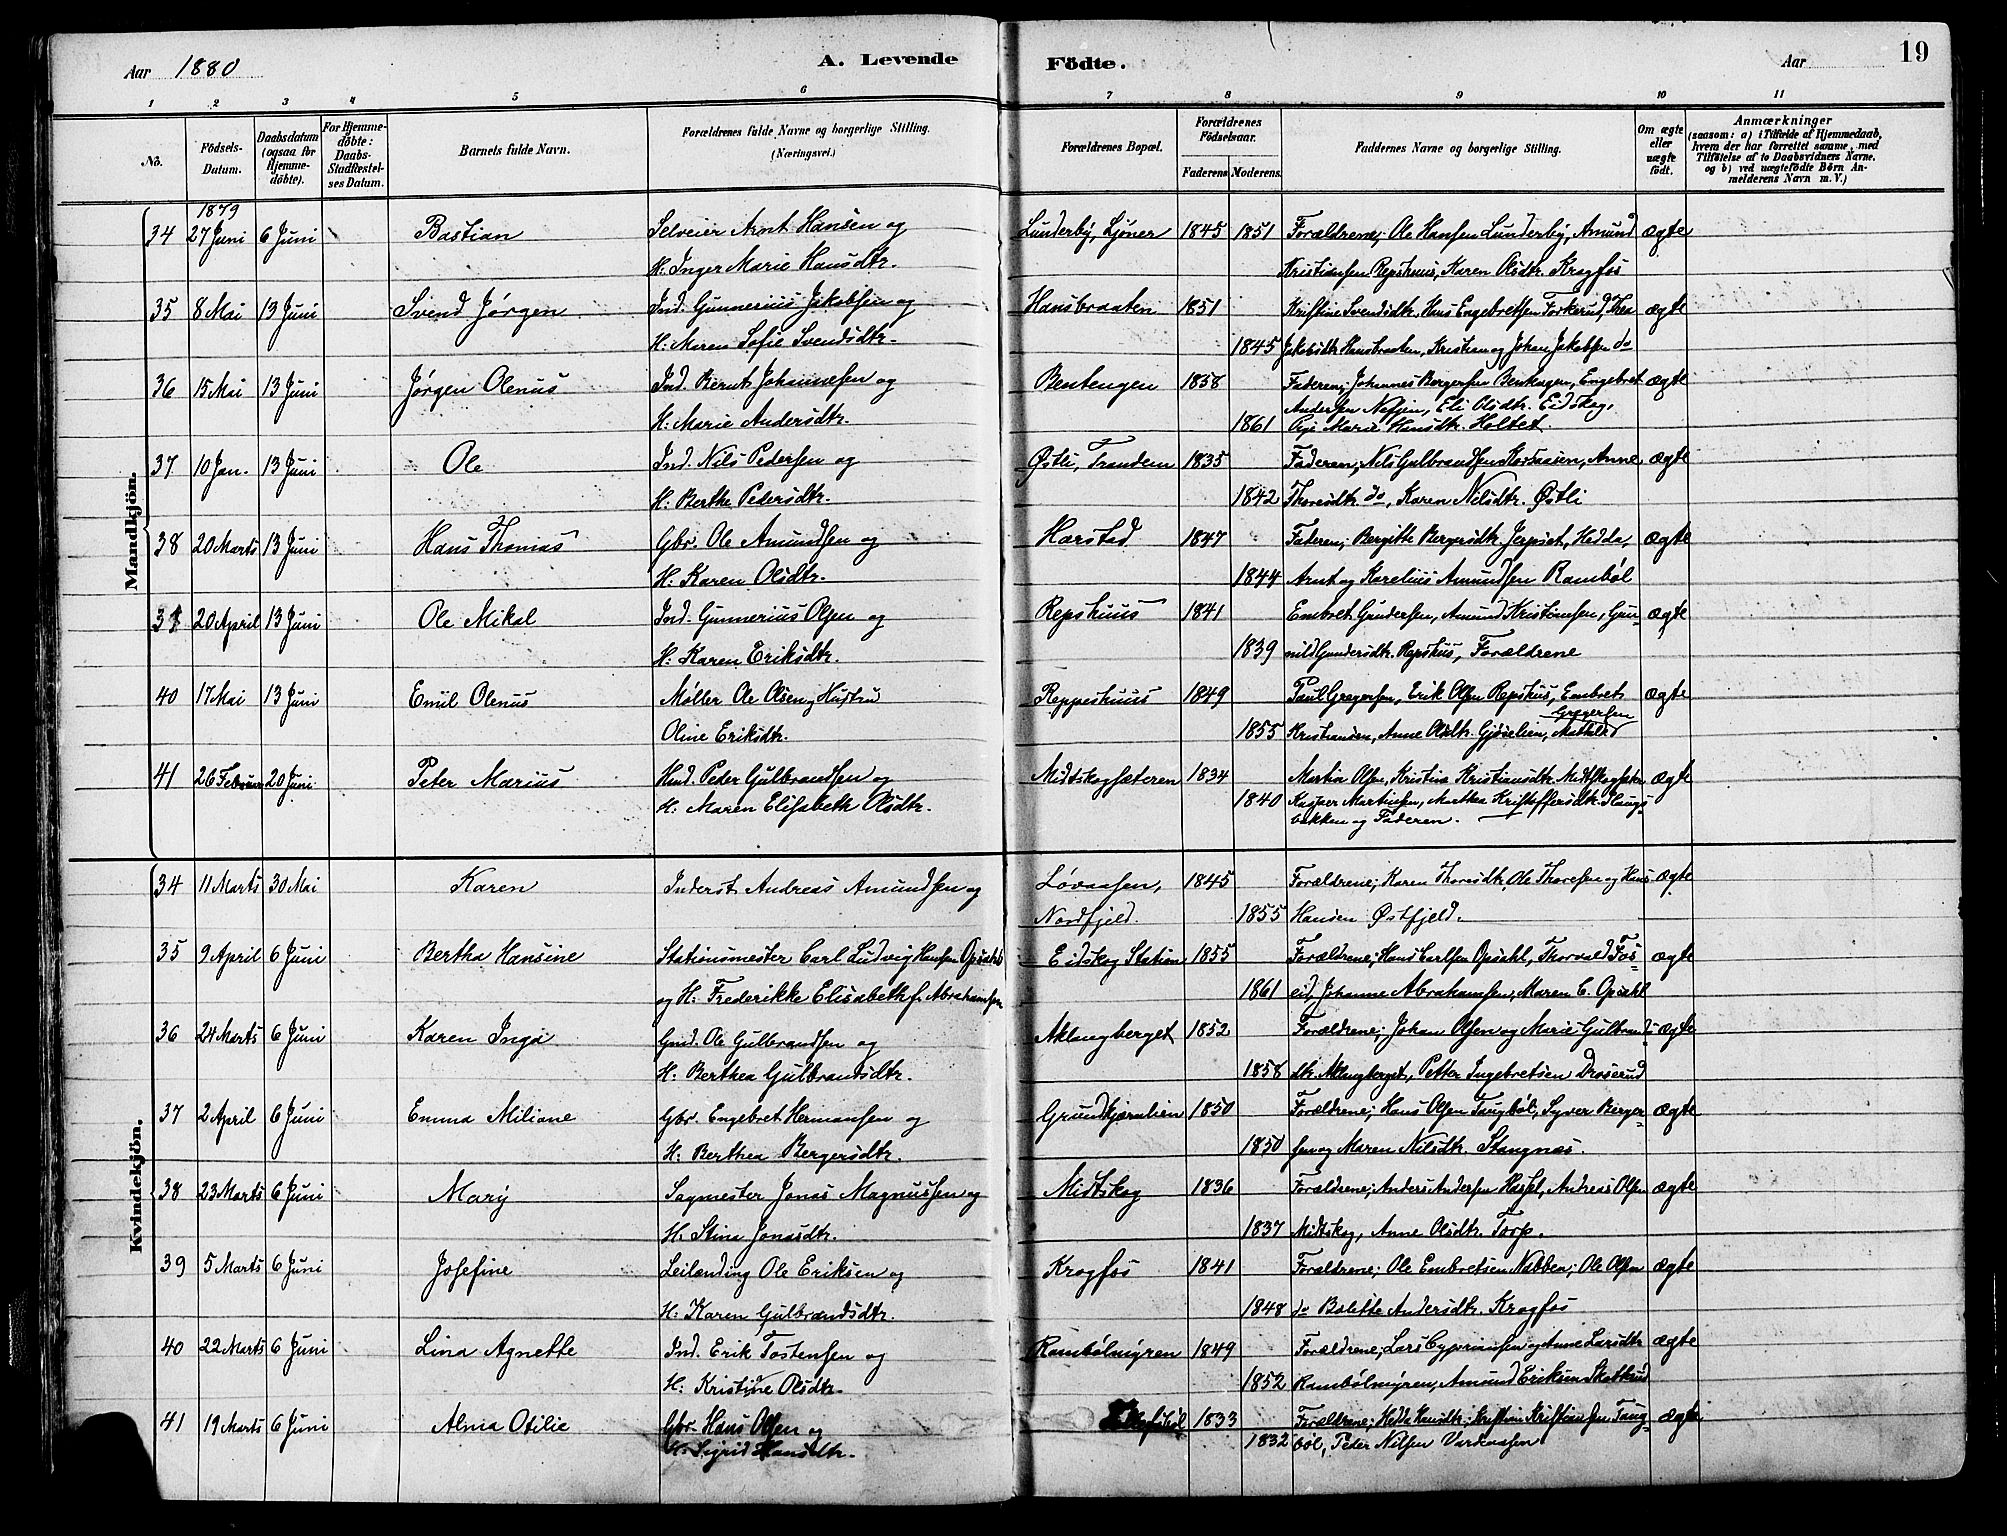 Aar 1880 A. Levende Födte. Aar 19
1 2 3 4 5 6 7 8 9 10 11
No. Födsels-Datum. Daabsdatum (ogsaa for Hjemme-döbte). For Hjemme-döbte: Daabs-Stadfæstel-ses Datum. Barnets fulde Navn. Forældrenes fulde Navne og borgerlige Stilling. (Næringsvei.) Forældrenes Bopæl. Forældrenes Födselsaar. Faderens Moderens. Faddernes Navne og borgerlige Stilling. Om ægte eller uægte födt. Anmærkninger (saasom: a) i Tilfælde af Hjemmedaab, hvem der har forrettet samme, med Tilföielse af to Daabsvidners Navne, og b) ved uægtefödte Børn An-melderens Navn m. V.)
Mandkjön.
1879
34 27 Juni 6 Juni Bastian Selveier Arnt Hansen og Lunderby, Ljøner 1845 1851 Forældrene; Ole Hansen Lunderby, Amund ægte
H: Inger Marie Hansdtr. Kristiansen Repshuus, Karen Olsdtr. Krogfos
35 8 Mai 13 Juni Svend Jørgen Ind. Gunnerius Jakobsen og Hansbraaten 1851 Kristine Svendsdtr. Hans Engebretsen Forkerud, Thea ægte
H: Maren Sofie Svendsdtr. 1845 Jakobsdtr. Hansbraaten, Kristian og Johan Jakobsen do
36 15 Mai 13 Juni Jørgen Olenus Ind. Bernt Johannesen og Bentengen 1858 Faderen; Johannes Borgersen Bentengen, Engebret ægte
Andersen Nessjen, Eli Olsdtr. Eidskog,
H: Marie Andersdtr. 1861 Pige Marie Hansdtr. Holtet
37 10 Jan. 13 Juni Ole Ind. Nils Pedersen og Østli, Trandem 1835 Faderen; Nils Gulbrandsen Korsaasen, Anne ægte
H: Berthe Petersdtr. 1842 Thoresdtr. do, Karen Nilsdtr. Østli
38 20 Marts 13 Juni Hans Thomas Gbr. Ole Amundsen og Harstad 1847 Faderen; Bergitte Bergersdtr. Jerpset, Hedda, ægte
H: Karen Olsdtr. 1844 Arnt og Karelius Amundsen Rambøl
39 20 April 13 Juni Ole Mikal Ind. Gunnerius Olsen og Repshuus 1841 Embret Gundersen, Amund Kristiansen, Gun- ægte
H: Karen Eriksdtr. 1839 nild Gundersdtr. Repshus, Forældrene
40 17 Mai 13 Juni Emil Olenus Møller Ole Olsen og Hustru Reppeshuus 1849 Paul Gregersen, Erik Olsen Repshus, Embret ægte
Gregersen
Oline Eriksdtr. 1855 Kristiansen, Anne Olsdtr. Gjøselien, Mathild
41 26 Februar 20 Juni Peter Marius Husd. Peder Gulbrandsen og Midtskogsæteren 1834 Martin Olsen, Kristine Kristiansdtr. Midtskogsæter ægte
H: Maren Elisabeth Olsdtr. 1840 Kasper Martinsen, Marthea Kristoffersdtr. Haugs-
bakken og Faderen.
Kvindekjön.
34 11 Marts 30 Mai Karen Inderst. Andreas Amundsen og Løvaasen, 1845 Forældrene; Karen Thoresdtr. Ole Thoresen og Hans ægte
Nordfjeld. 1855 Hansen Østfjeld.
35 9 April 6 Juni Bertha Hansine Stationsmester Carl Ludvig Hansen Opsahl Eidskog Station 1855 Forældrene; Hans Carlsen Opsahl, Thorvald Fos- ægte
og H: Frederikke Elisabeth f. Abrahamsen 1861 eid, Johanne Abrahamsen, Maren C. Opsahl
36 24 Marts 6 Juni Karen Inga Gmd. Ole Gulbrandsen og Aklangberget 1852 Forældrene; Johan Olsen og Marie Gulbrands- ægte
H: Berthea Gulbrandsdtr. 1858 dtr. Aklangberget, Petter Ingebretsen Droserud
37 2 April 6 Juni Emma Miliane Gbr. Engebret Hermansen og Grundtjernlien 1850 Forældrene; Hans Olsen Taugbøl, Syver Berger- ægte
H: Berthea Bergersdtr. 1850 sen og Maren Nilsdtr. Stangnæs.
38 23 Marts 6 Juni Mary Sagmester Jonas Magnussen og Midtskog 1836 Forældrene; Anders Andersen Hassel, Andreas Olsen ægte
H: Stina Jonasdtr. 1837 Midtskog, Anne Olsdtr. Torp.
39 5 Marts 6 Juni Josefine Leilending Ole Eriksen og Krogfos 1841 Forældrene; Ole Embretsen Nabben; Ole Olsen ægte
H: Karen Gulbrandsdtr. 1848 do Bolette Andersdtr. Krogfos
40 22 Marts 6 Juni Lina Agnette Ind. Erik Tostensen og Rambølmyren 1849 Forældrene; Lars Cypriansen og Anne Larsdtr. ægte
H: Kristine Olsdtr. 1852 Rambølmyren, Amund Eriksen Skotterud
41 19 Marts 6 Juni Alma Otilie Gbr. Hans Olsen og 1833 Forældrene; Hedda Hansdtr.; Kristian Kristiansen Taug- ægte
H: Sigrid Hansdtr. 1832 bøl, Peder Nilsen Vardaasen